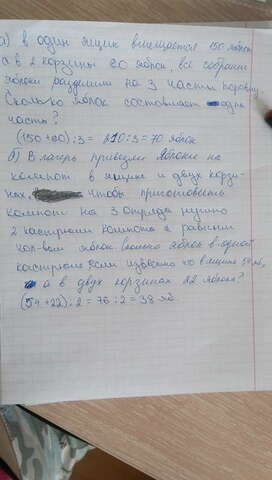 а) в один ящик вмещается 150 яблок
а в 2 корзины 60 яблок, все собрани
яблоки разделили на 3 части поровну
Сколько яблок составляет одна
часть?
(150+60):3= 210:3=70 яблок
б) В лагерь привезли яблоки на
компот в ящике и двух корзи-
нах, чтобы приготовить
компот на 3 отряда нужно
2 кастрюли компота с равным
кол-вом яблок. Сколько яблок в одной
кастрюле если известно что в ящике 54 яб,
а в двух корзинах 22 яблока?
(54+22):2=76:2=38 яб